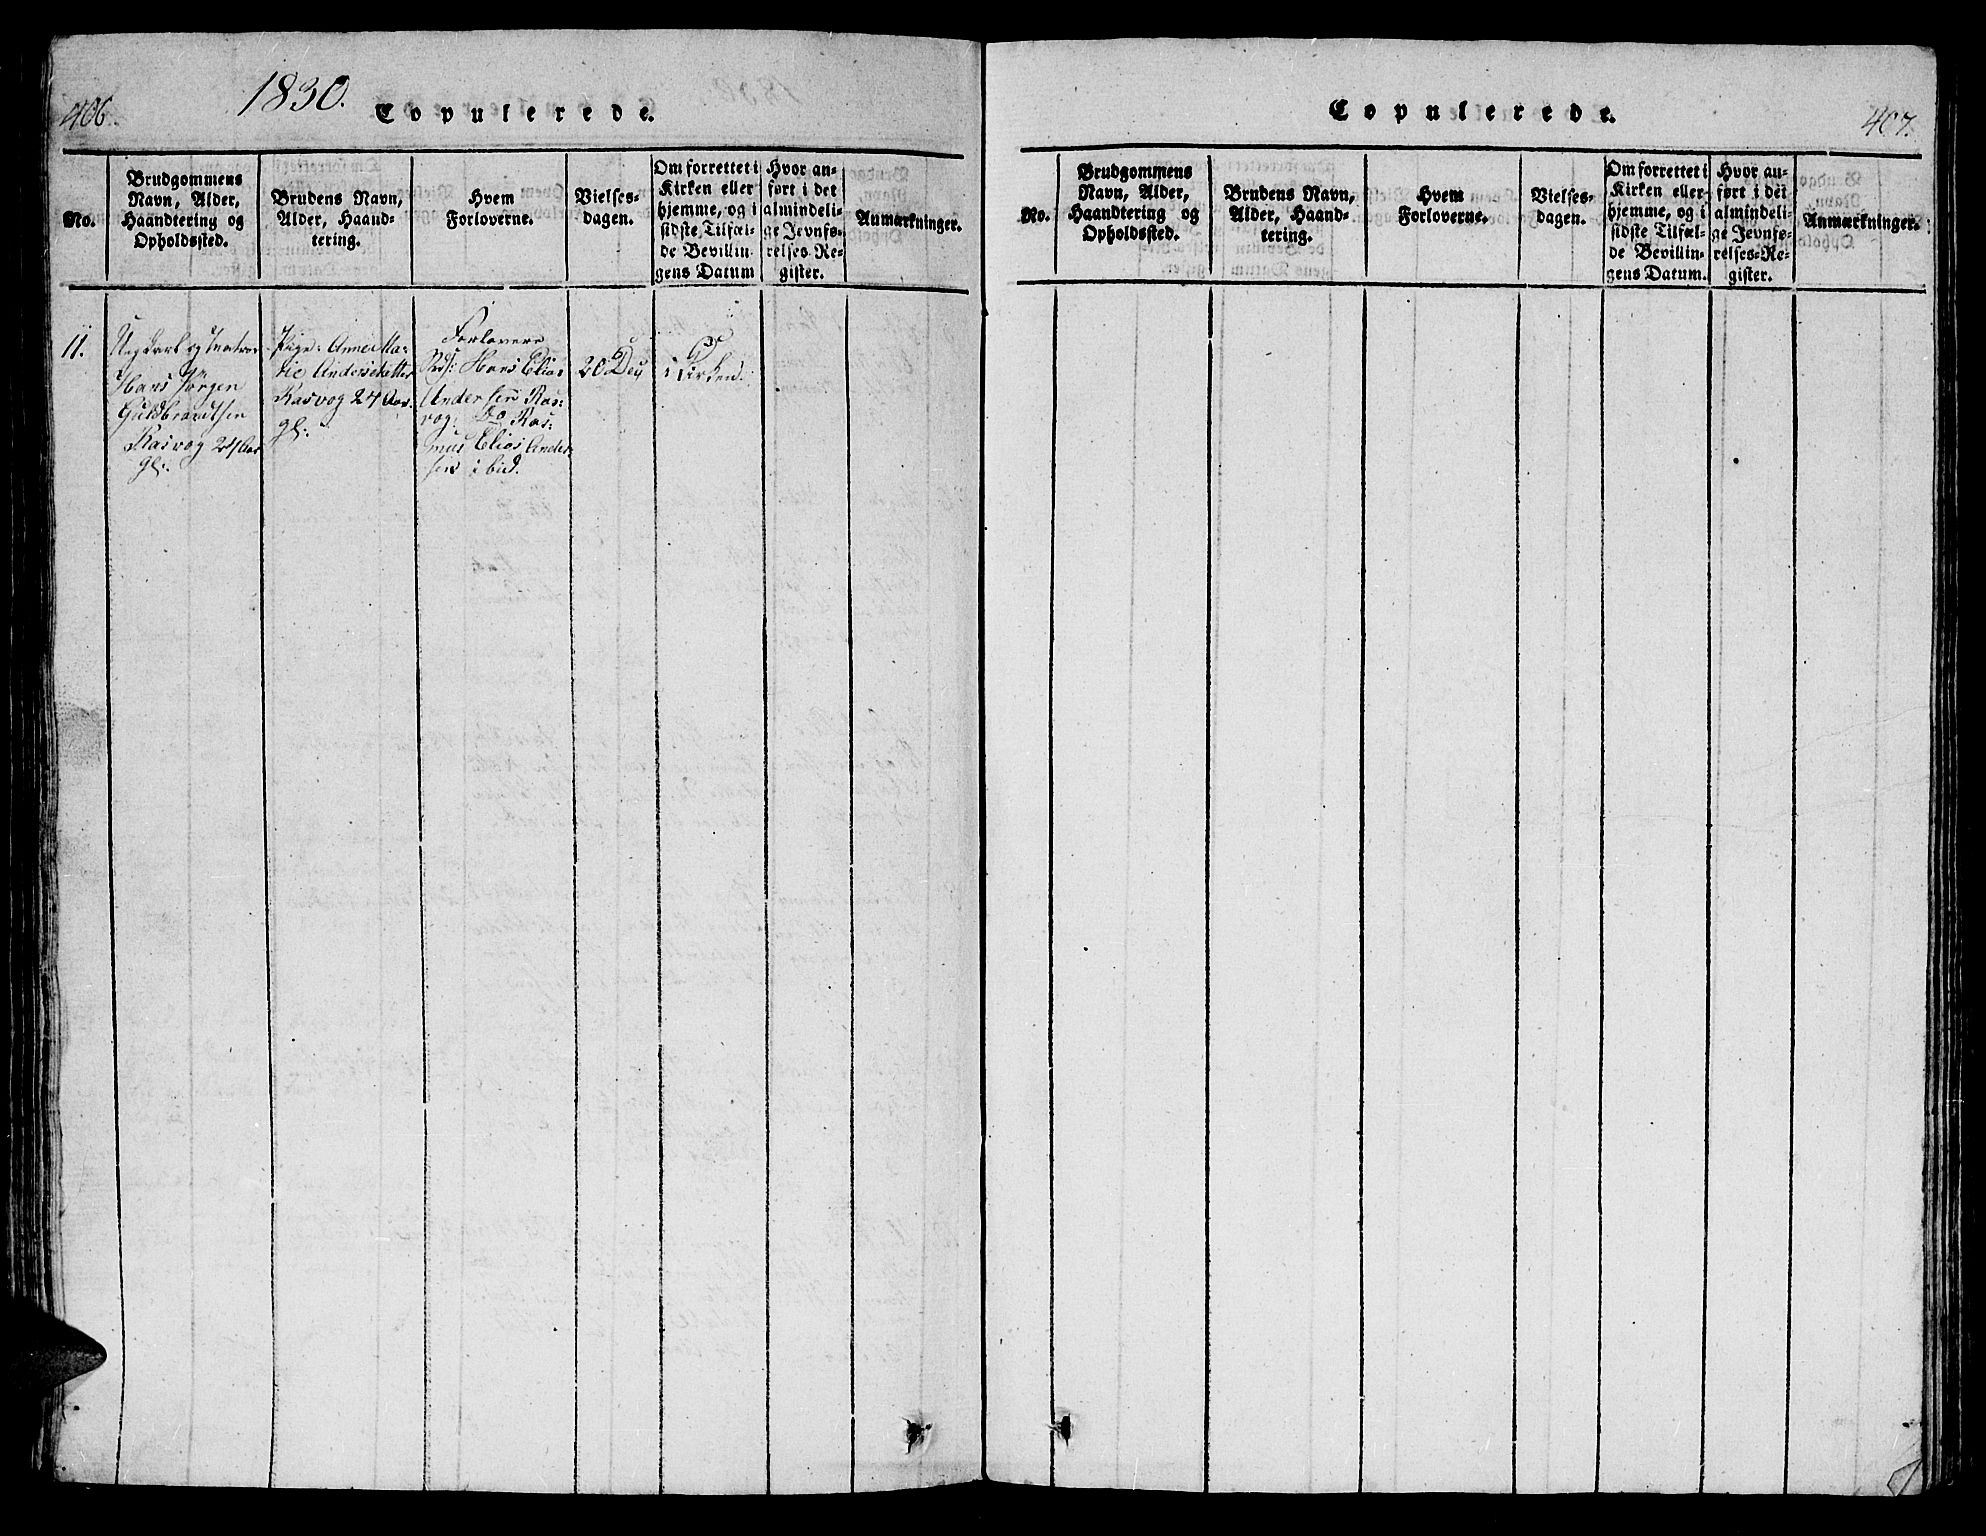 406.
1830.
Copulerede.
No.
Brudgommens
Navn, Alder,
Haandtering og
Opholdssted.
Brudens Navn,
Alder, Haand-
tering.
Hvem
Forloverne.
Vielses-
dagen.
Om forrettet i
Kirken eller
hjemme, og i
sidste Tilfæl-
de Bevillin-
gens Datum
Hvor an-
ført i det
almindeli-
ge Jevnfø-
relses-Re-
gister.
Anmærkninger.
11.
Ungkarl og
Hans Jørgen
Guldbrandtsen
Rasvog 24 Aar
gl:
Pige: Anne Ma-
rie Andersdatter
Rasvog 24 Aar
gl:
Forlovere
Hans Elias
Andersen Ras-
vog: Do Ras-
mus Elias Ander-
sen ibid.
20 
i Kirken.
Copulerede.
407.
No.
Brudgommens
Navn, Alder,
Haandtering og
Opholdssted.
Brudens Navn,
Alder, Haand-
tering.
Hvem
Forloverne.
Vielses-
dagen.
Om forrettet i
Kirken eller
hjemme, og i
sidste Tilfæl-
de Bevillin-
gens Datum.
Hvor an-
ført i det
almindeli-
ge Jevnfø-
relses-Re-
gister.
Anmærkninger.